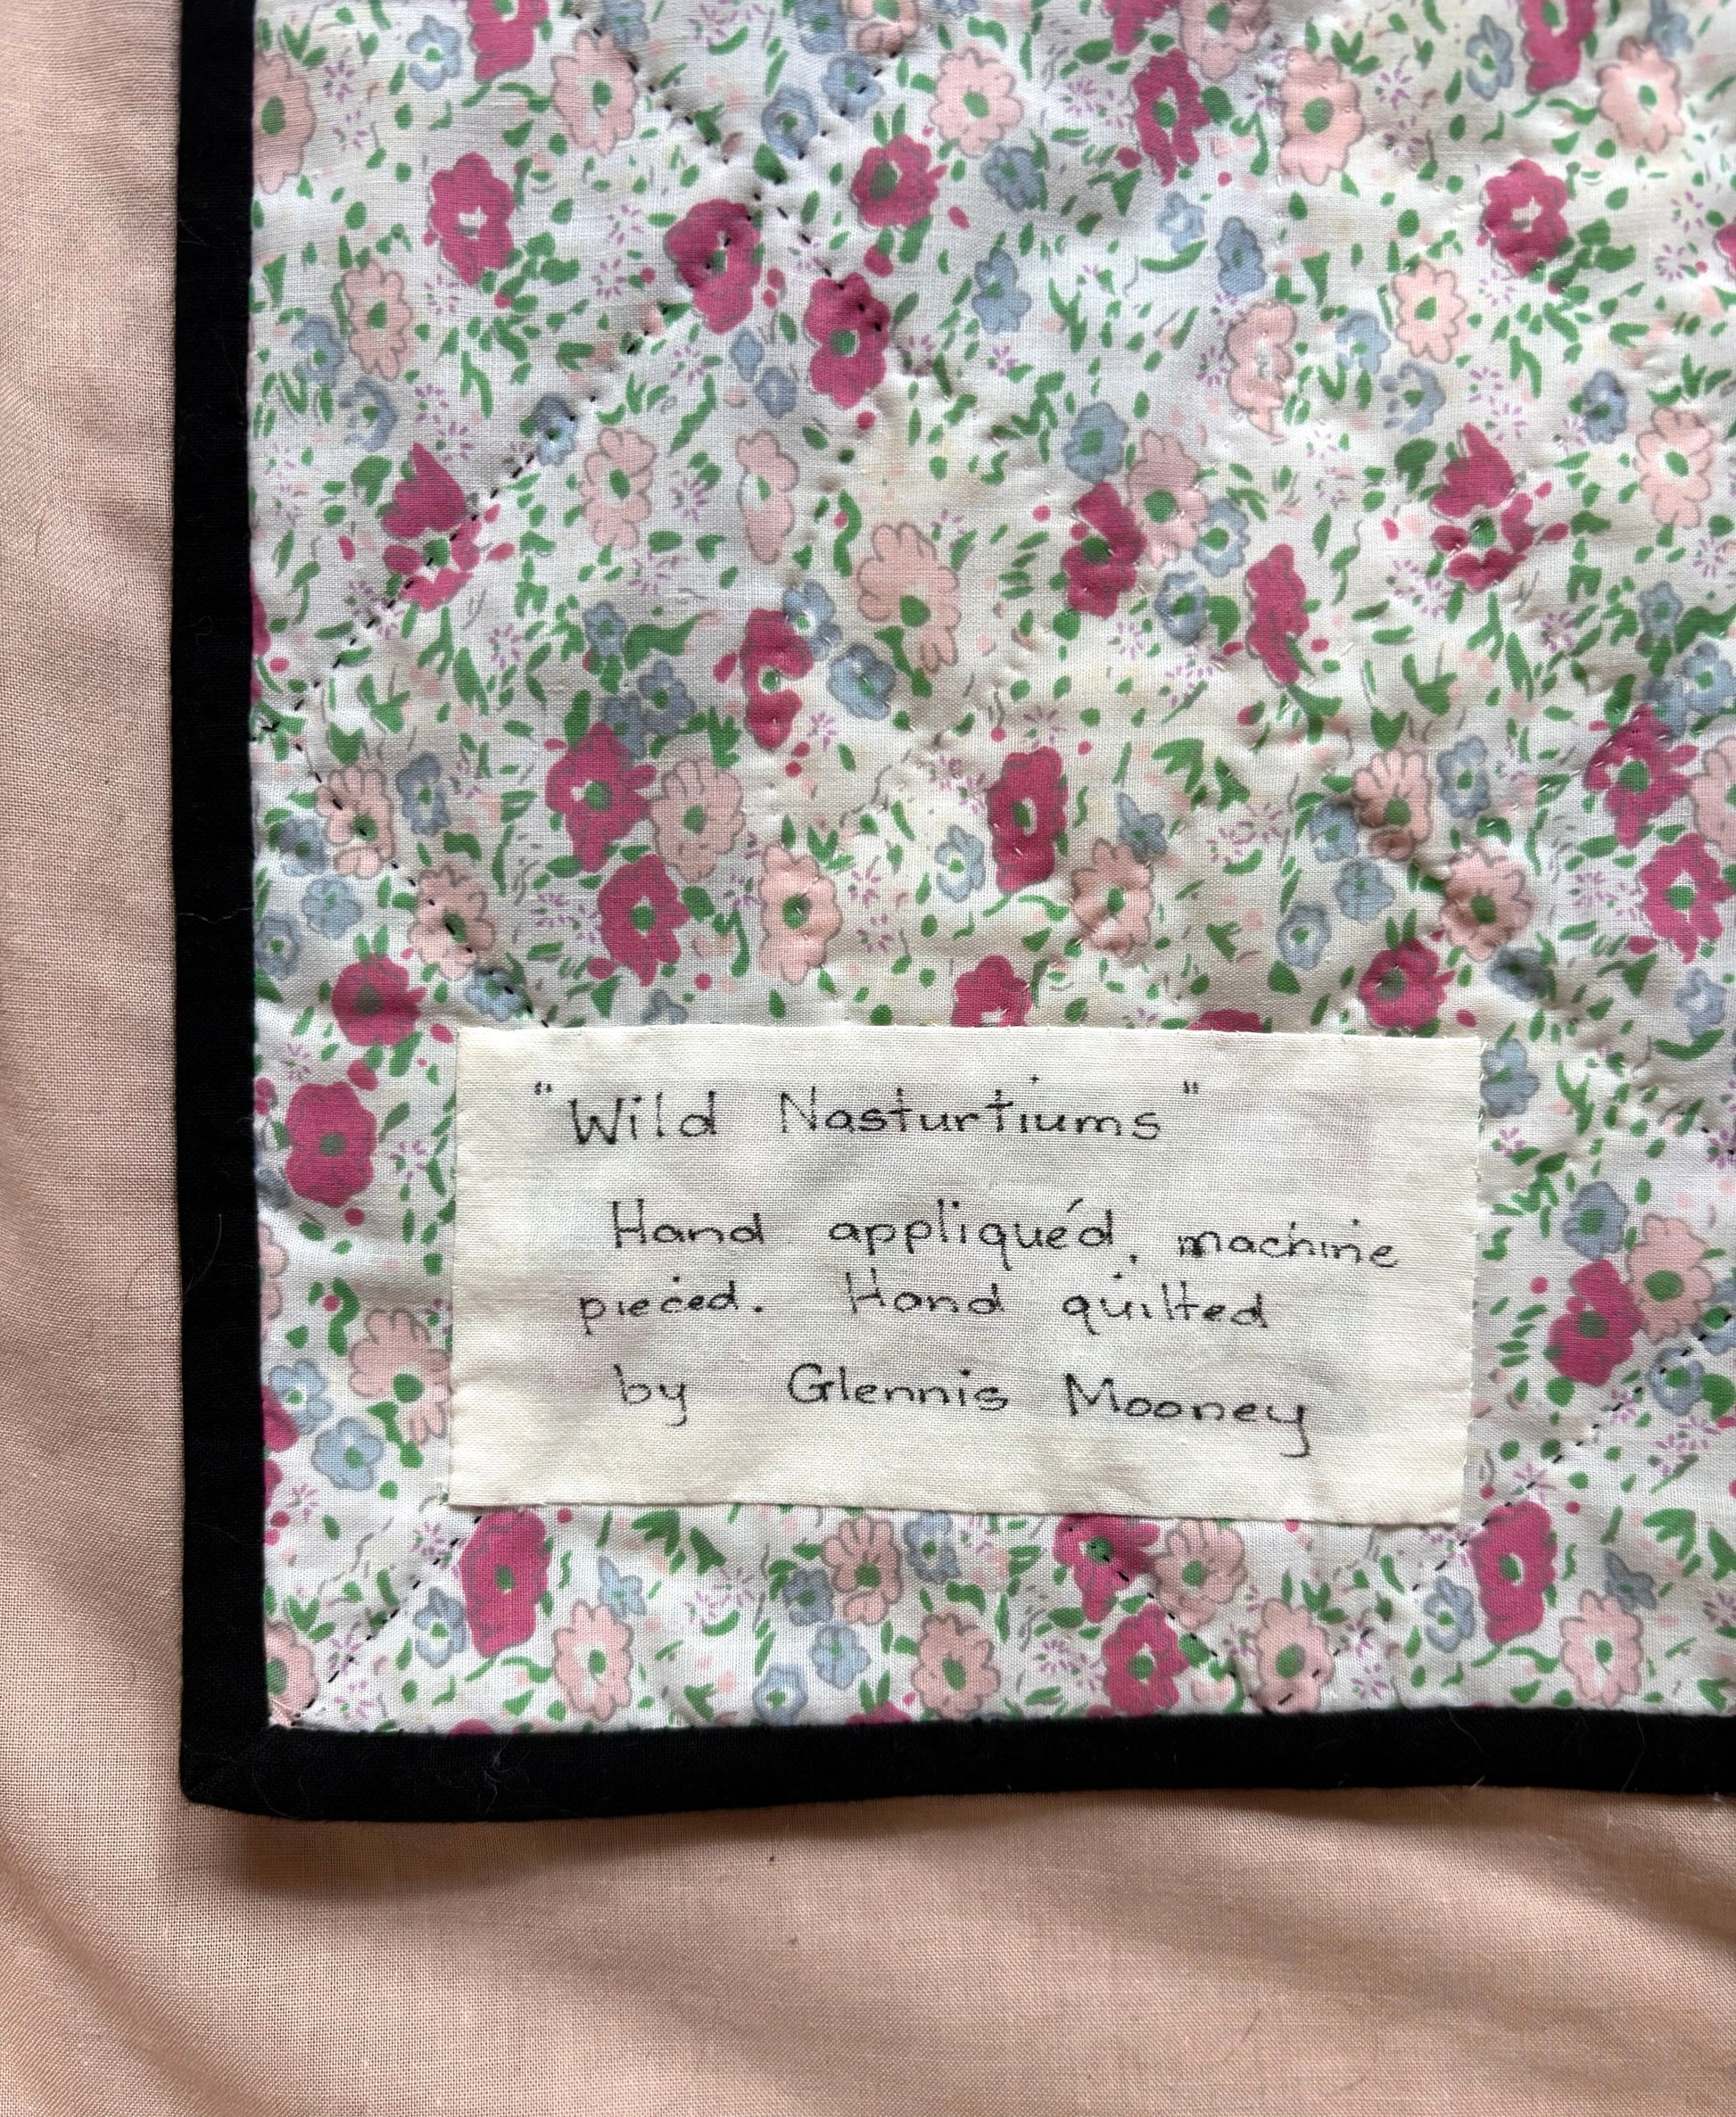 "Wild Nasturtiums"
Hand appliqué'd, machine
pieced. Hand quilted
by Glennis Mooney